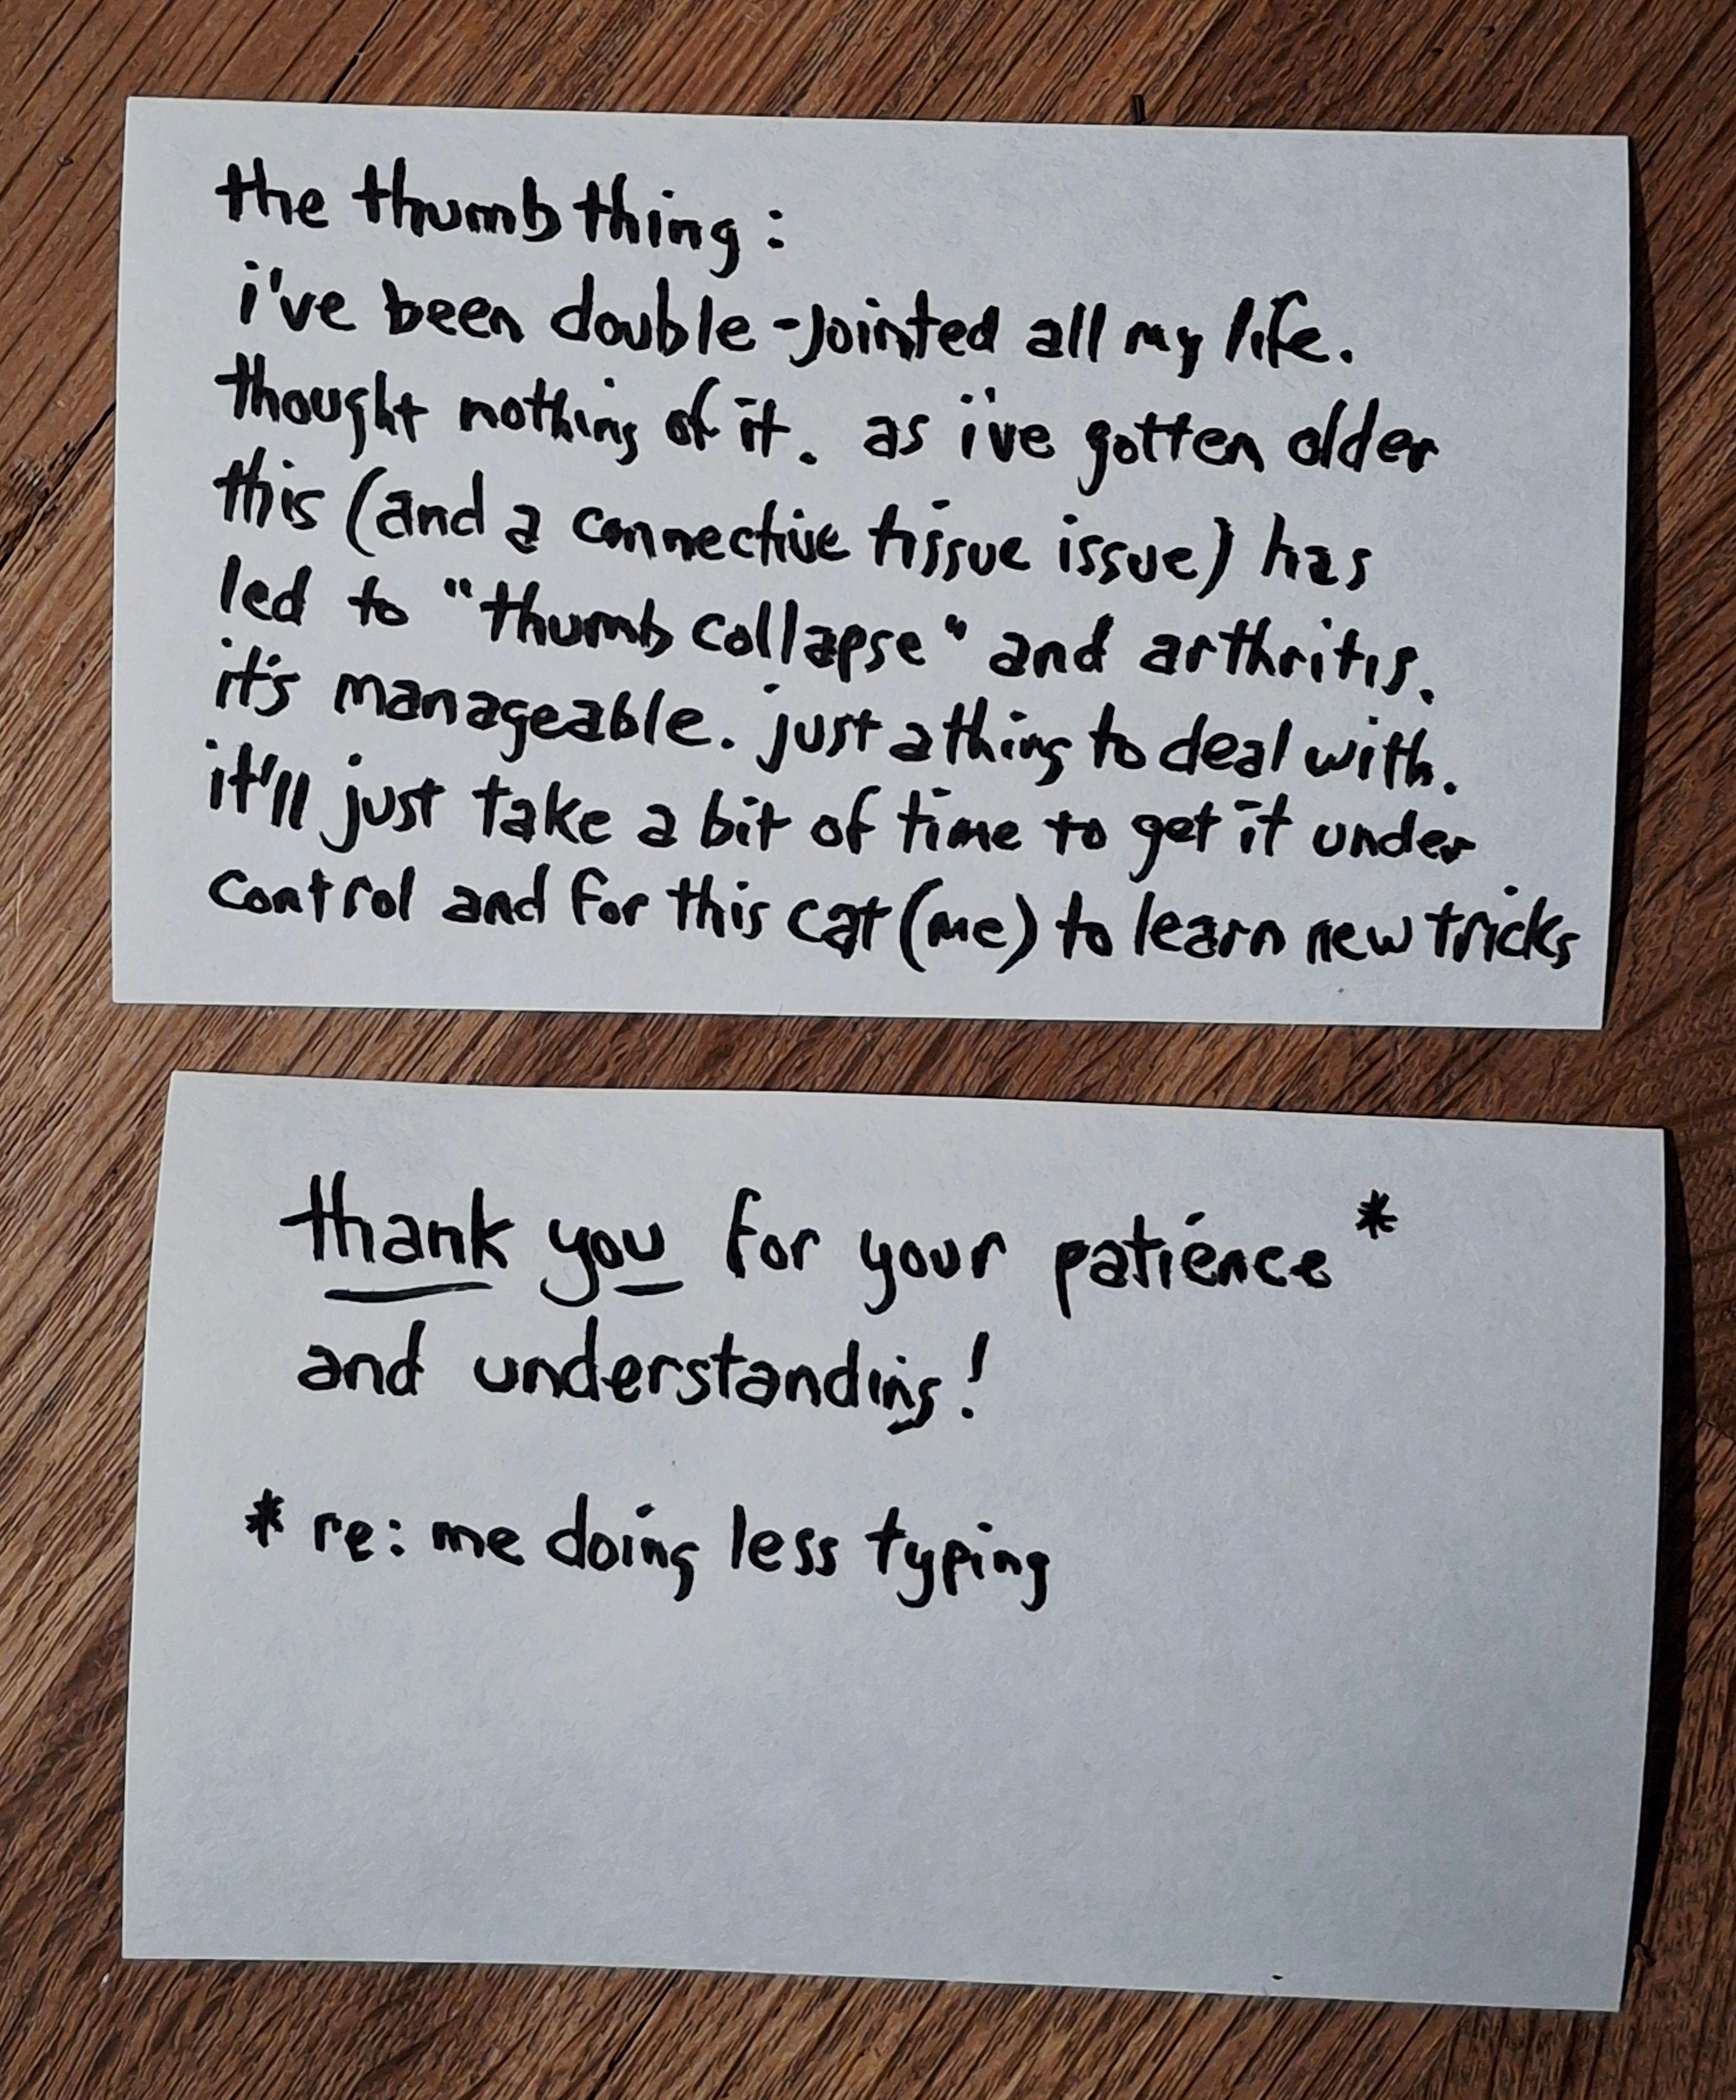 the thumb thing:
i've been double-jointed all my life.
thought nothing of it. as i've gotten older
this (and a connective tissue issue) has
led to "thumb collapse" and arthritis.
it's manageable. just a thing to deal with.
it'll just take a bit of time to get it under
control and for this cat (me) to learn new tricks
thank you for your patience*
and understanding!
* re: me doing less typing